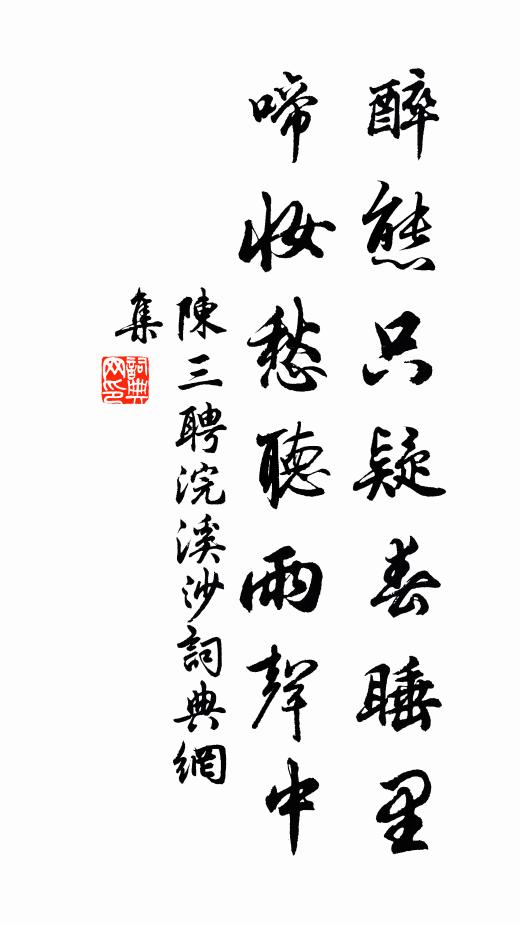 醉態只疑春睡里
啼妝愁聽雨聲中
陳三聘浣溪沙詞典網
集
詞典
網印